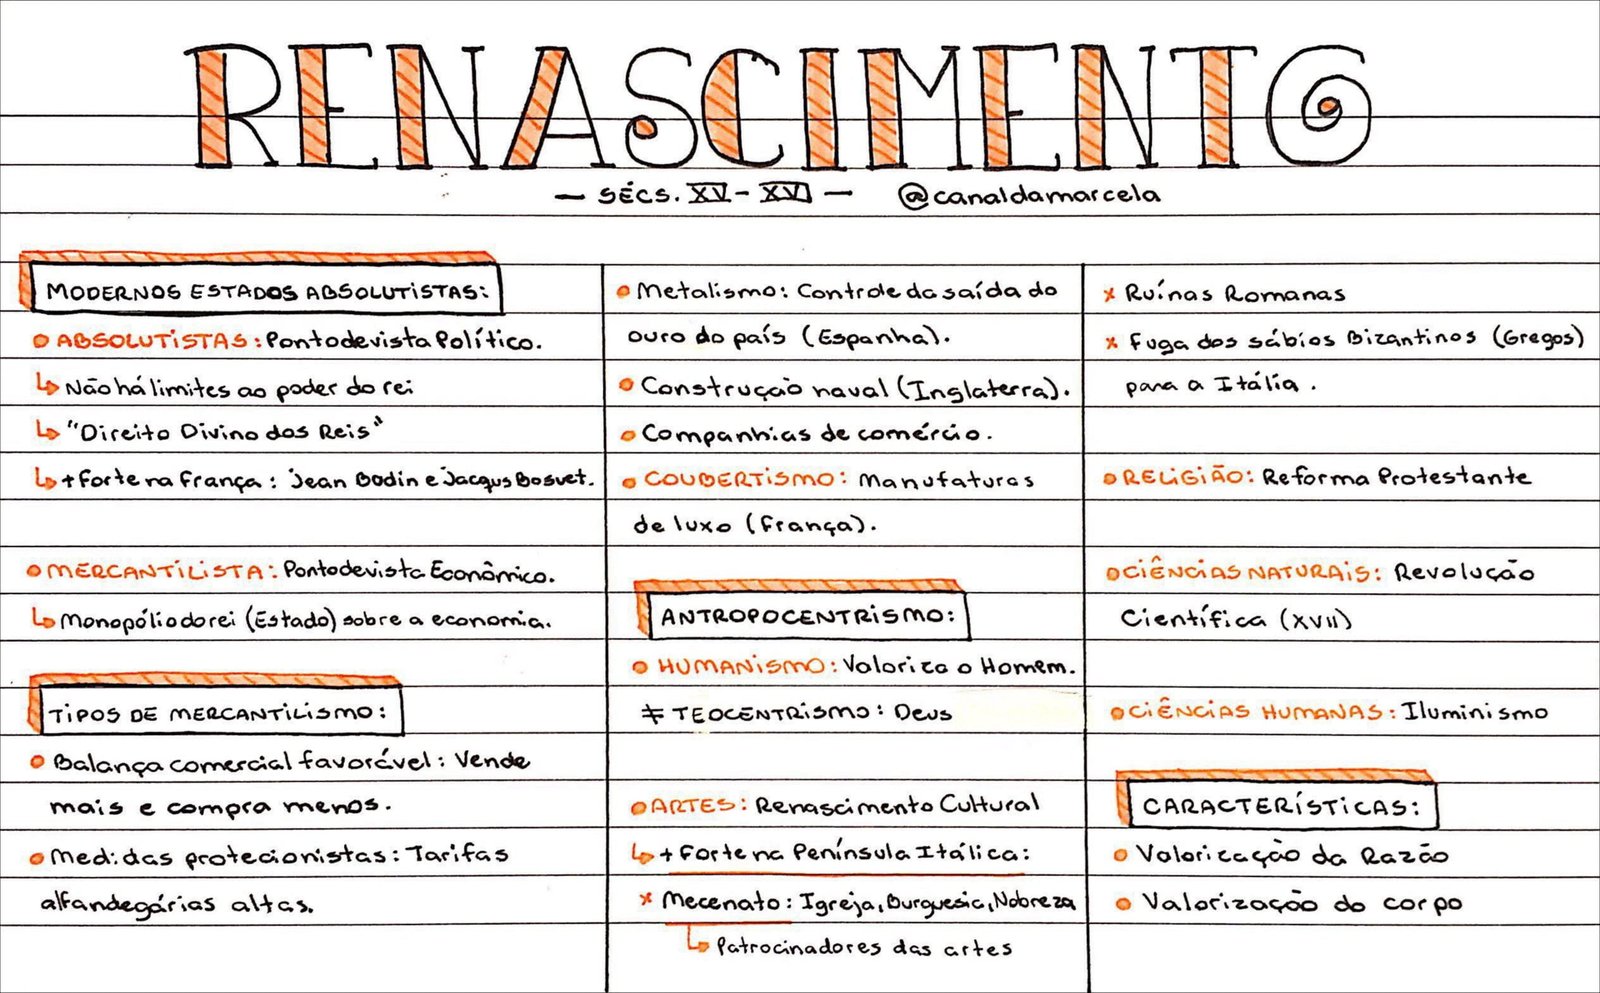 RENASCIMENTO
— SÉCS. XV - XVI — @canaldamarcela
MODERNOS ESTADOS ABSOLUTISTAS:
ABSOLUTISTAS: Ponto de vista Político.
↳ Não há limites ao poder do rei
↳ "Direito Divino dos Reis"
↳ + forte na França: Jean Bodin e Jacqus Bosuet.
MERCANTILISTA: Ponto de vista Econômico.
↳ Monopólio do rei (Estado) sobre a economia.
TIPOS DE MERCANTILISMO:
Balança comercial favorável: Vende
mais e compra menos.
Medidas protecionistas: Tarifas
alfandegárias altas.
Metalismo: Controle da saída do
ouro do país (Espanha).
Construção naval (Inglaterra).
Companhias de comércio.
COUBERTISMO: Manufaturas
de luxo (França).
ANTROPOCENTRISMO:
HUMANISMO: Valoriza o Homem.
≠ TEOCENTRISMO: Deus
ARTES: Renascimento Cultural
↳ + forte na Península Itálica:
x Mecenato: Igreja, Burguesia, Nobreza
↳ Patrocinadores das artes
x Ruínas Romanas
x Fuga dos sábios Bizantinos (Gregos)
para a Itália.
RELIGIÃO: Reforma Protestante
CIÊNCIAS NATURAIS: Revolução
Científica (XVII)
CIÊNCIAS HUMANAS: Iluminismo
CARACTERÍSTICAS:
Valorização da Razão
Valorização do corpo